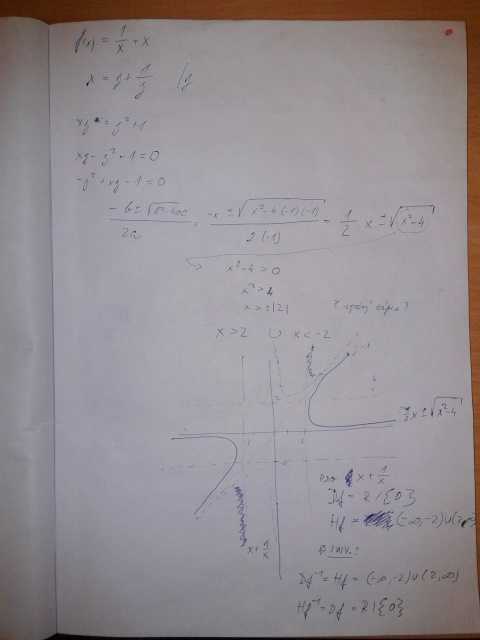 f(x) = 1/x + x
x = y + 1/y /y
xy = y² + 1
xy - y² - 1 = 0
-y² + xy - 1 = 0
-b ± √b²-4ac / 2a = -x ± √x²-4(-1)(-1) / 2(-1) = 1/2 x ± √x²-4
x² - 4 > 0
x² > 4
x > ±|2|
x > 2 ∪ x < -2
x ± √x²-4
pro x + 1/x
Df = R \ {0}
Hf = (-∞, -2) ∪ (2, ∞)
x + 1/x
Df⁻¹ = Hf = (-∞, -2) ∪ (2, ∞)
Hf⁻¹ = Df = R \ {0}